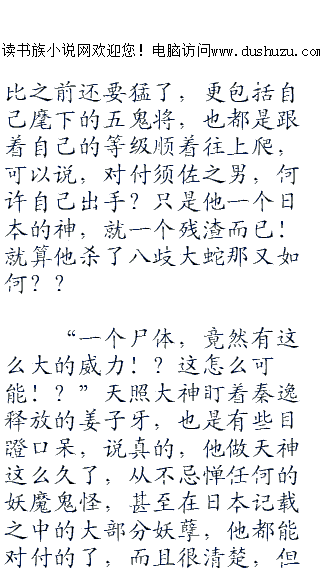 读书族小说网欢迎您！电脑访问www.dushuzu.com
比之前还要猛了，更包括自
己麾下的五鬼将，也都是跟
着自己的等级顺着往上爬，
可以说，对付须佐之男，何
许自己出手？只是他一个日
本的神，就一个残渣而已！
就算他杀了八歧大蛇那又如
何？？
“一个尸体，竟然有这
么大的威力！？这怎么可
能！？”天照大神盯着秦逸
释放的姜子牙，也是有些目
瞪口呆，说真的，他做天神
这么久了，从不忌惮任何的
妖魔鬼怪，甚至在日本记载
之中的大部分妖孽，他都能
对付的了，而且很清楚，但